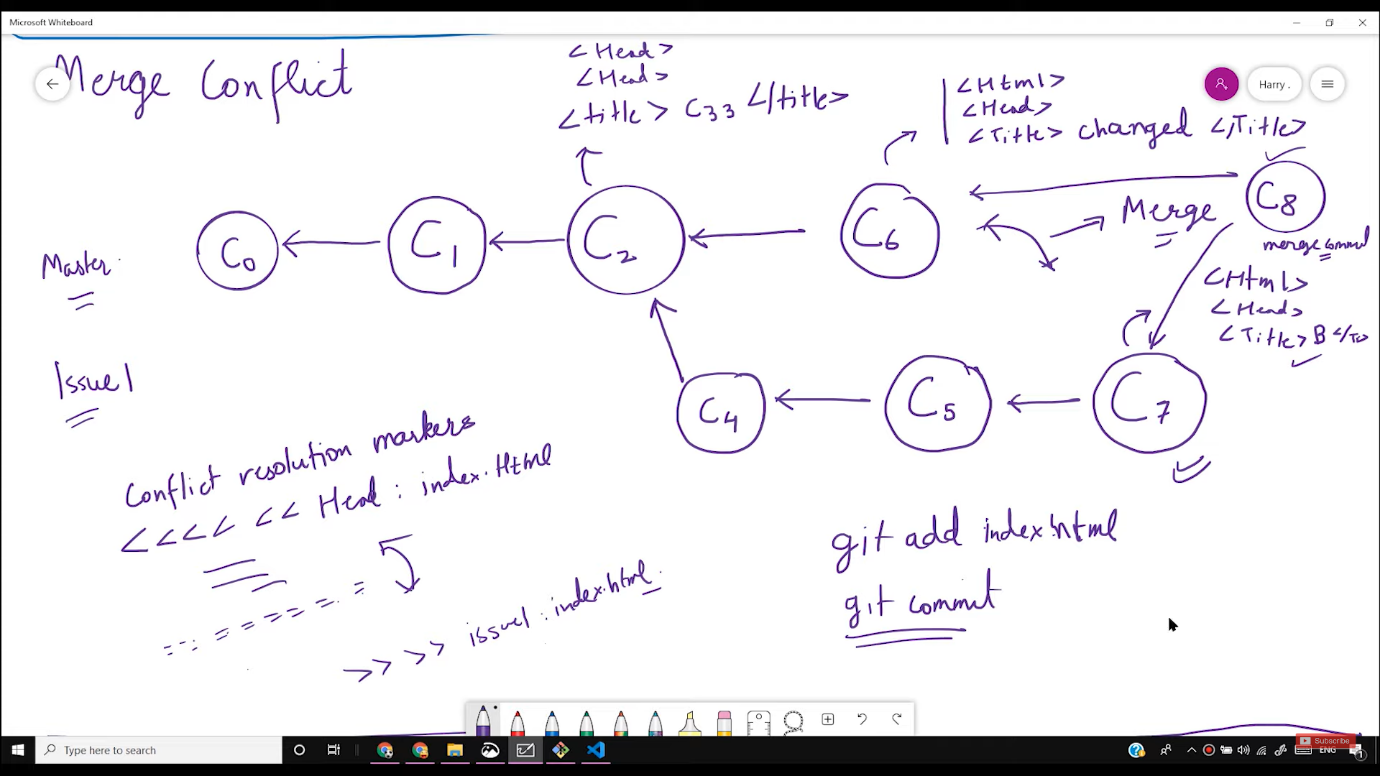 Microsoft Whiteboard
Merge Conflict
<Head>
<Head>
<title> C33 </title>
<Html>
<Head>
<Title> changed </Title>
Harry .
C0
C1
C2
C6
C8
Merge
merge commit
Master
<Html>
<Head>
<Title> B </T
Issue1
C4
C5
C7
Conflict resolution markers
<<<< << Head : index.Html
=======
>> >> issue1 : index.html
git add index.html
git commit
Type here to search
Subscribe
ENG
1